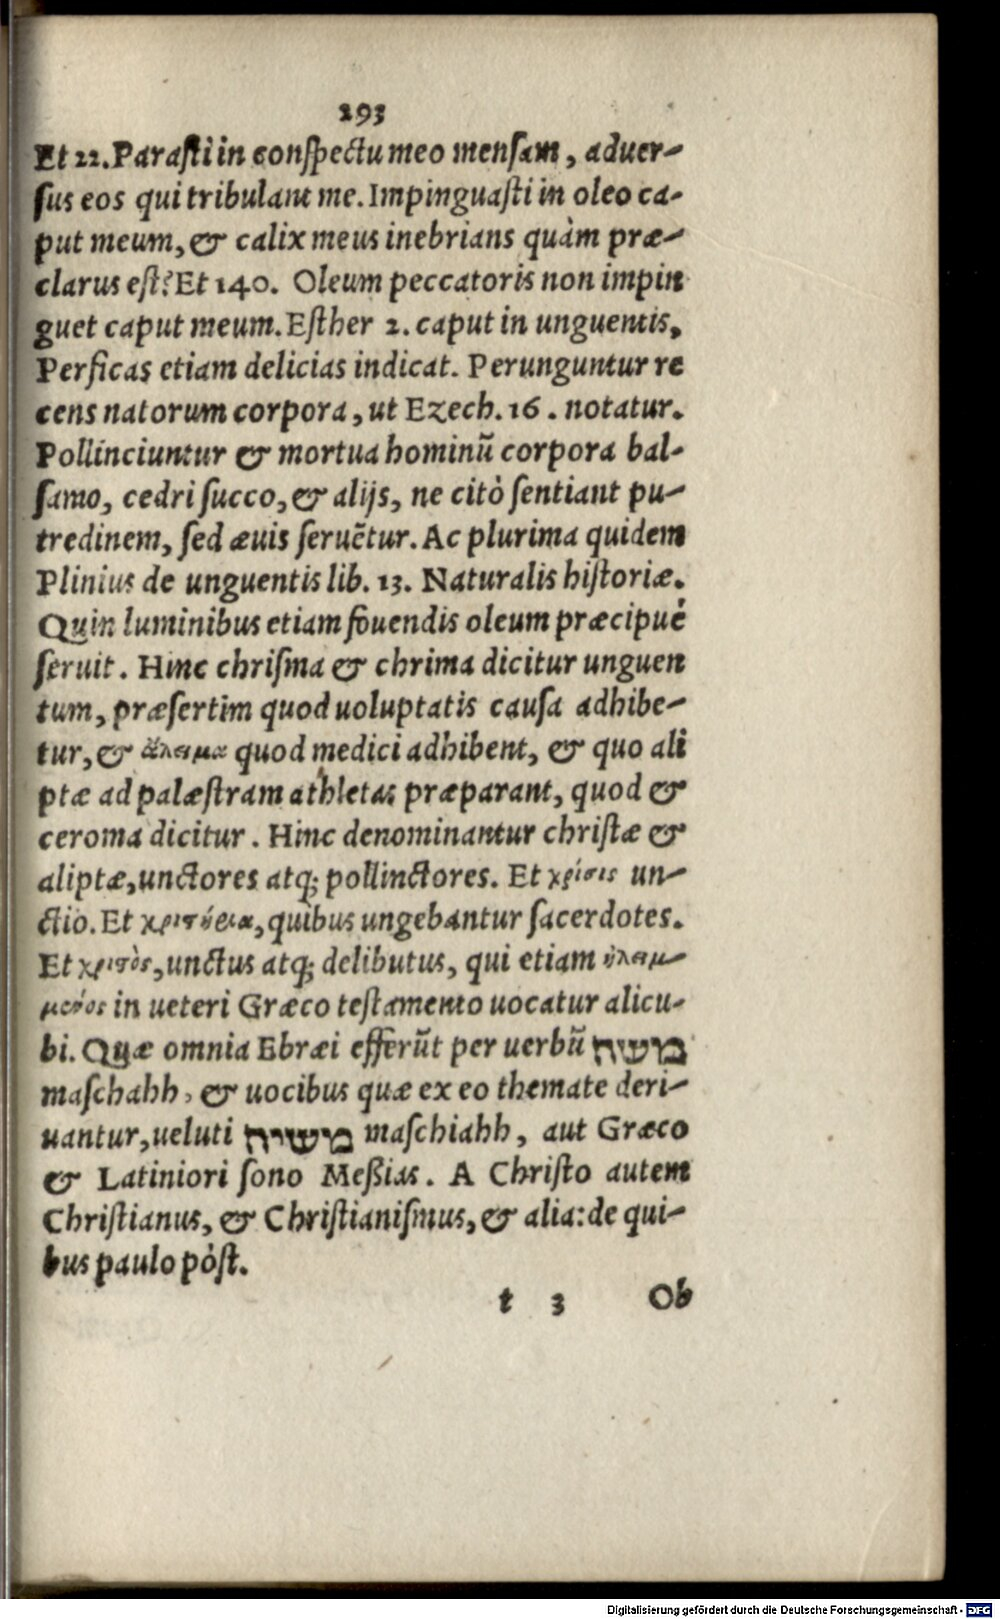 293
Et 22. Parasti in conspectu meo mensam, aduer-
sus eos qui tribulant me. Impinguasti in oleo ca-
put meum, & calix meus inebrians quàm præ-
clarus est? Et 140. Oleum peccatoris non impin
guet caput meum. Esther 2. caput in unguentis,
Persicas etiam delicias indicat. Perunguntur re
cens natorum corpora, ut Ezech. 16. notatur.
Pollinciuntur & mortua hominũ corpora bal-
samo, cedri succo, & alijs, ne citò sentiant pu-
tredinem, sed æuis seruẽtur. Ac plurima quidem
Plinius de unguentis lib. 13. Naturalis historiæ.
Quin luminibus etiam fouendis oleum præcipuè
seruit. Hinc chrisma & chrima dicitur unguen
tum, præsertim quod uoluptatis causa adhibe-
tur, & ἄλειμα quod medici adhibent, & quo ali
ptæ ad palæstram athletas præparant, quod &
ceroma dicitur. Hinc denominantur christæ &
aliptæ, unctores atq; pollinctores. Et χρίσις un-
ctio. Et χριστήρια, quibus ungebantur sacerdotes.
Et χριστὸς, unctus atq; delibutus, qui etiam ἠλειμ-
μένος in ueteri Græco testamento uocatur alicu-
bi. Quæ omnia Ebræi efferũt per uerbũ משח
maschahh, & uocibus quæ ex eo themate deri-
uantur, ueluti משיח maschiahh, aut Græco
& Latiniori sono Meßias. A Christo autem
Christianus, & Christianismus, & alia: de qui-
bus paulo pòst.
t 3 Ob
Digitalisierung gefördert durch die Deutsche Forschungsgemeinschaft - DFG